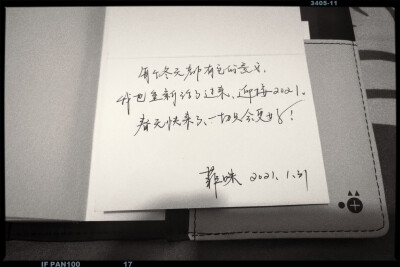 3405-11
每个冬天都有它的意义,
我也重新活了过来,迎接2021。
春天快来了,一切只会更好!
2021.1.31
IF PAN100
17